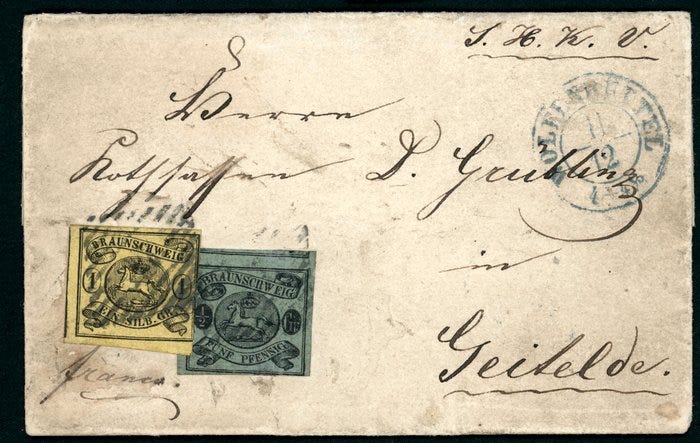 S. H. K. V.
WOLFENBÜTTEL
11
12
Herrn
Kothsassen D. Grubling
in
Geitelde.
franco.
BRAUNSCHWEIG
1 1
EIN SILB. GR.
BRAUNSCHWEIG
1/2 Gr
FÜNF PFENNIG